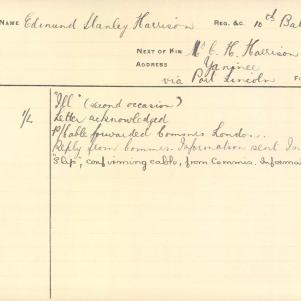 NAME Edmund Stanley Harrison REG. &C. 10th Bat
NEXT OF KIN Mr C. H. Harrison
ADDRESS Yaninee
via Port Lincoln
"Ill" (second occasion)
1/L Letter acknowledged
P/Cable forwarded Commis London.
Reply from Commis. Information sent
"Slip", confirming cable, from Commis. Informa